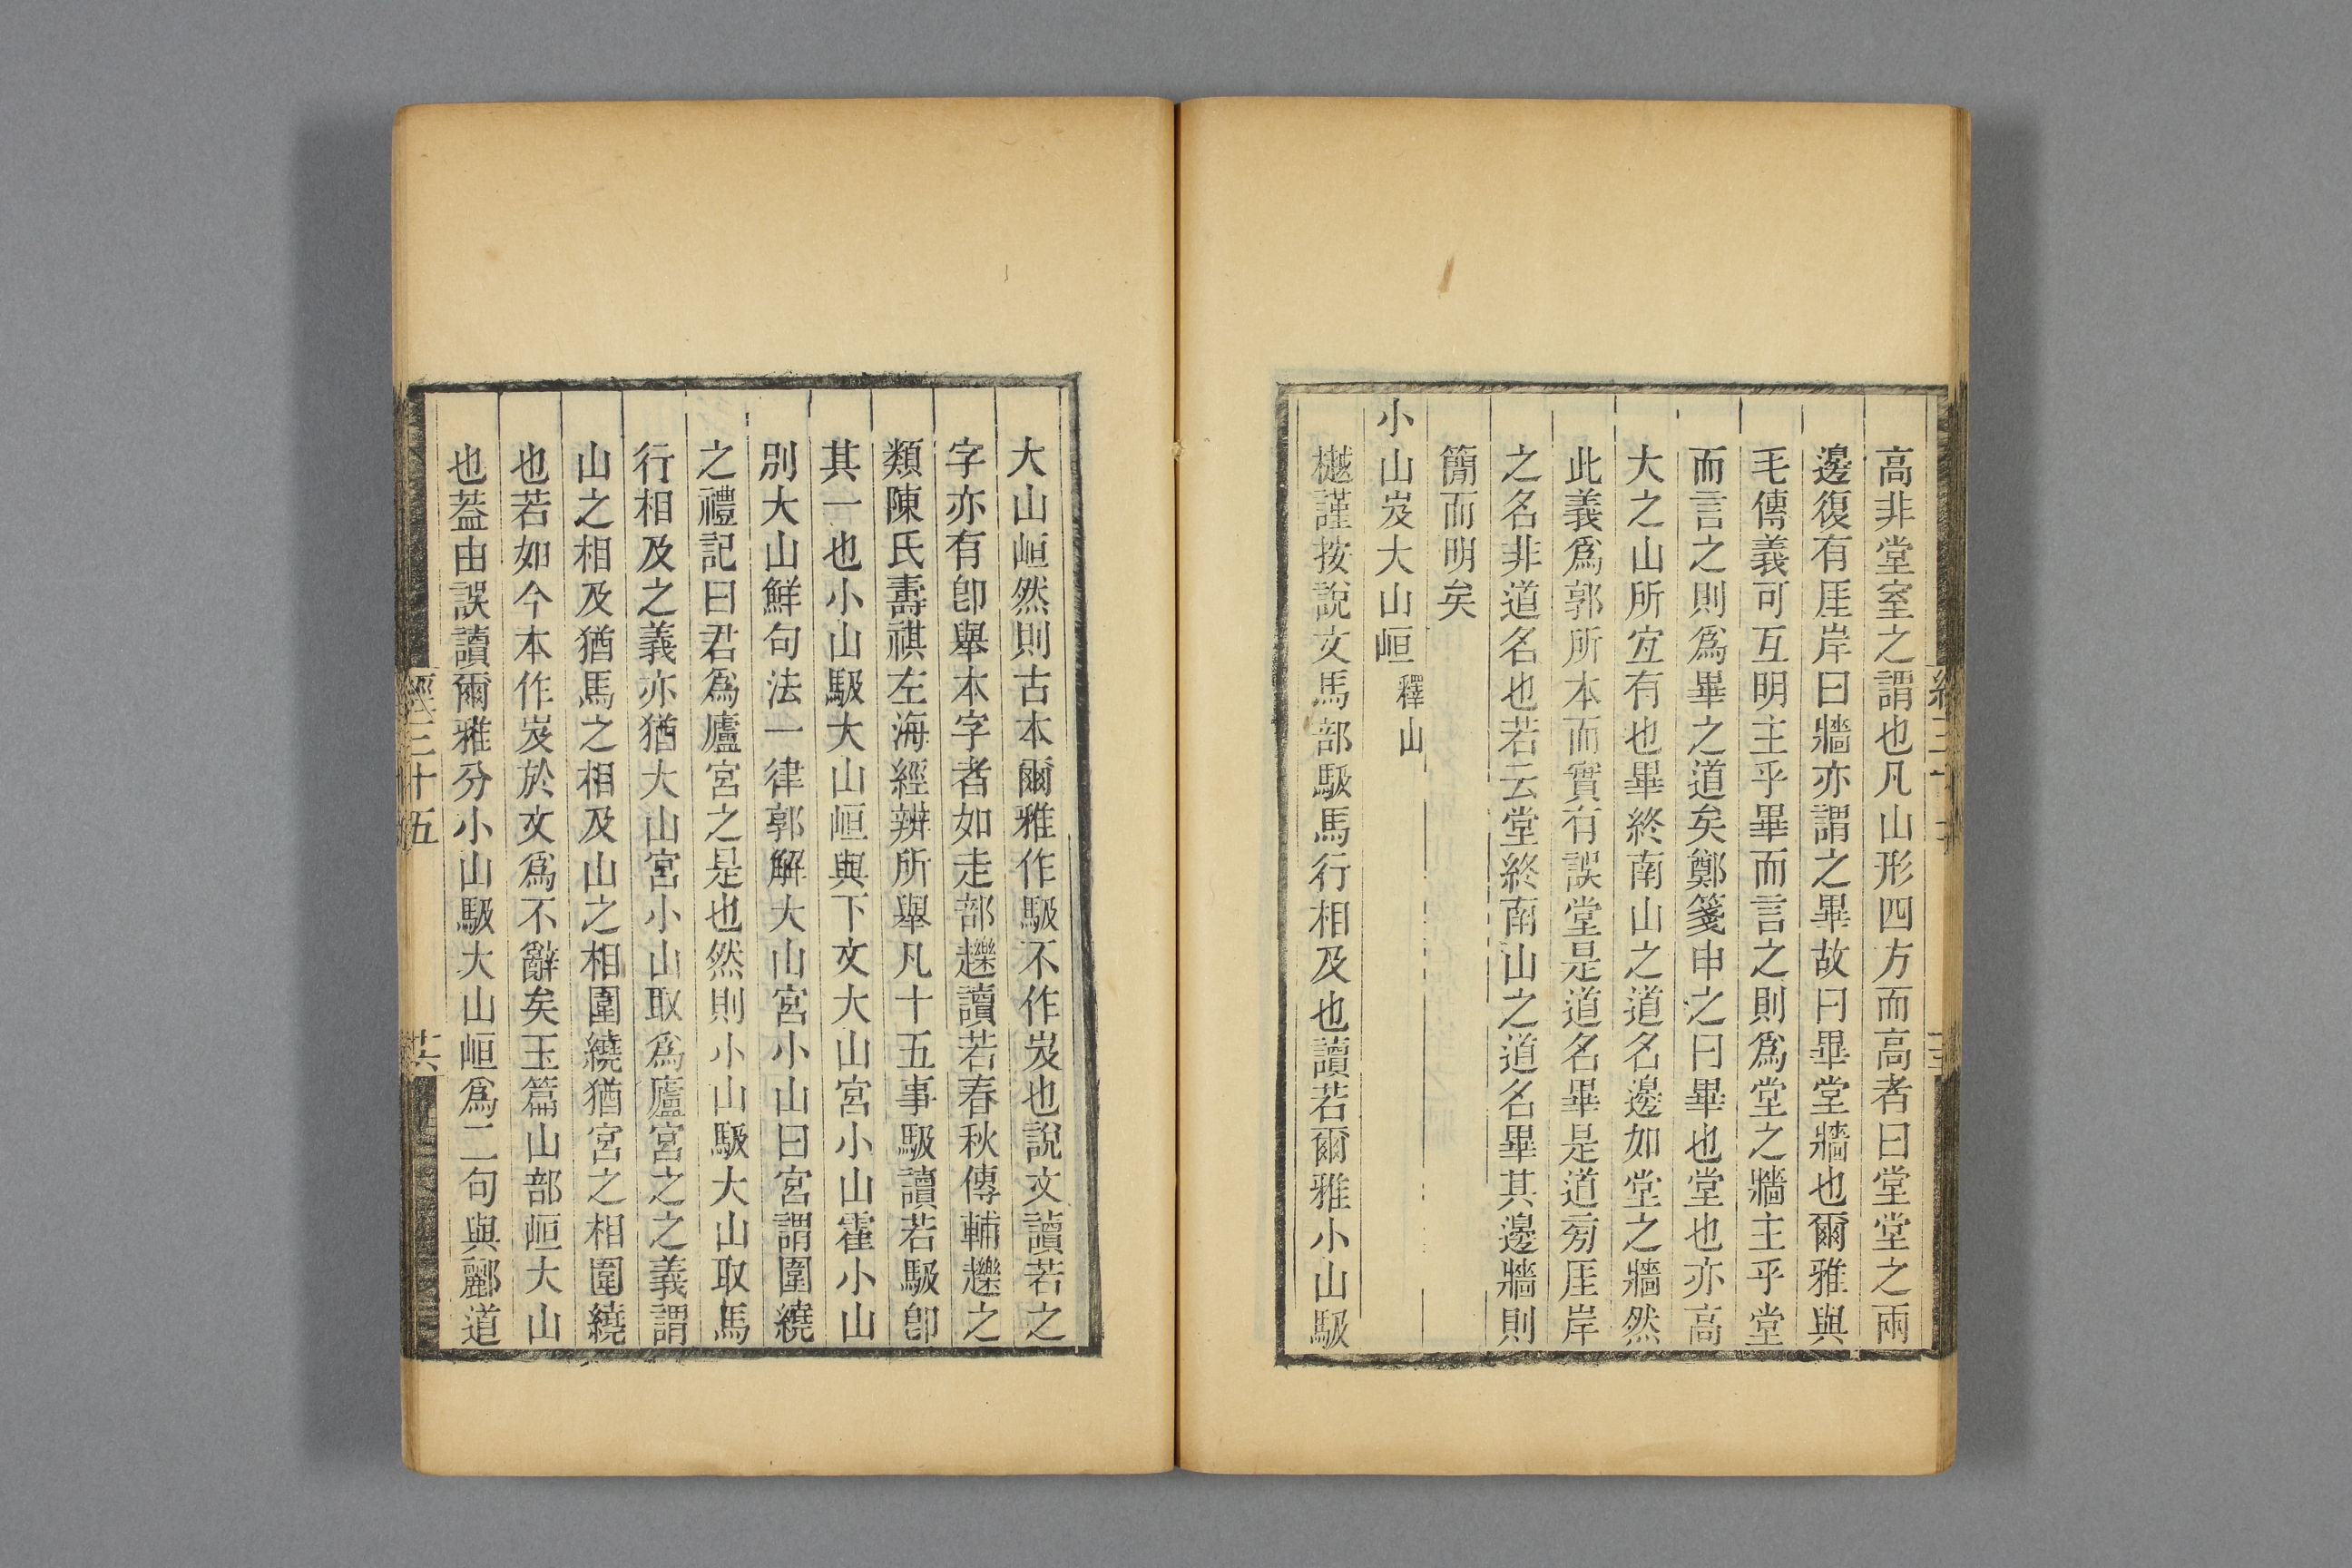 高非堂室之謂也凡山形四方而高者曰堂堂之兩
邊復有厓岸曰牆亦謂之畢故曰畢堂牆也爾雅與
毛傳義可互明主乎畢而言之則爲堂之牆主乎堂
而言之則爲畢之道矣鄭箋申之曰畢也堂也亦高
大之山所宐有也畢終南山之道名邊如堂之牆然
此義爲郭所本而實有誤堂是道名畢是道旁厓岸
之名非道名也若云堂終南山之道名畢其邊牆則
簡而明矣
小山岌大山峘 釋山
樾謹按說文馬部馺馬行相及也讀若爾雅小山馺
大山峘然則古本爾雅作馺不作岌也說文讀若之
字亦有卽舉本字者如走部趮讀若春秋傳輔趮之
類陳氏壽祺左海經辨所舉凡十五事馺讀若馺卽
其一也小山馺大山峘與下文大山宮小山霍小山
別大山鮮句法一律郭解大山宮小山曰宮謂圍繞
之禮記曰君爲廬宮之是也然則小山馺大山取馬
行相及之義亦猶大山宮小山取爲廬宮之之義謂
山之相及猶馬之相及山之相圍繞猶宮之相圍繞
也若如今本作岌於文爲不辭矣玉篇山部峘大山
也葢由誤讀爾雅分小山馺大山峘爲二句與酈道
經三十五